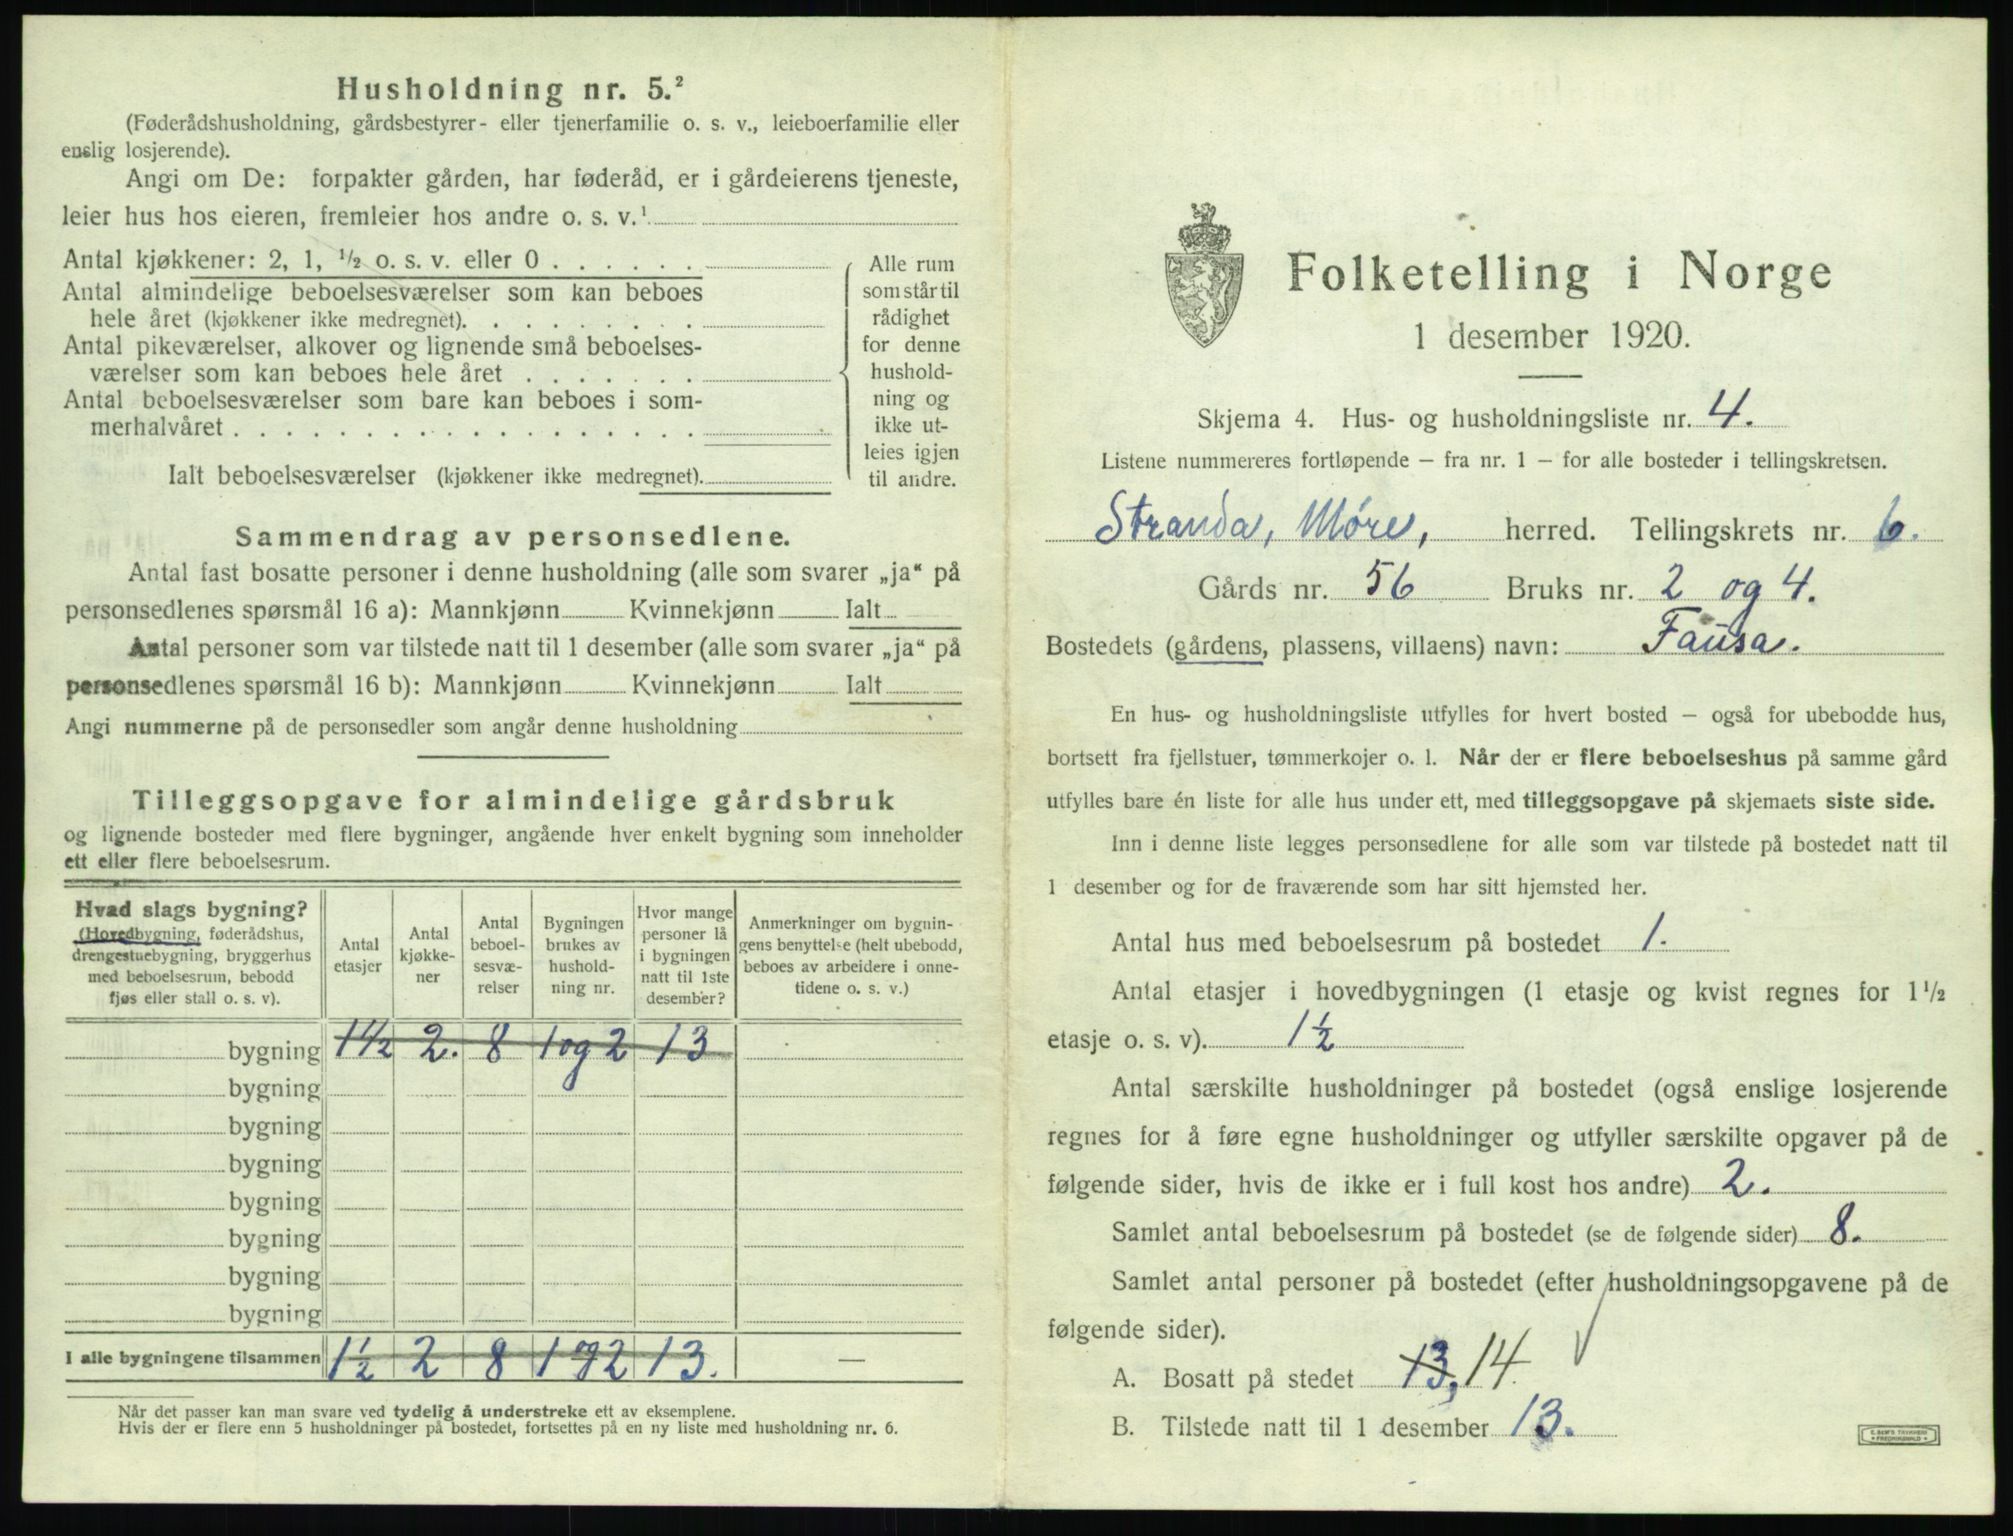 Husholdning nr. 5.²
(Føderådshusholdning, gårdsbestyrer- eller tjenerfamilie o. s. v., leieboerfamilie eller
enslig losjerende).
Angi om De: forpakter gården, har føderåd, er i gårdeierens tjeneste,
leier hus hos eieren, fremleier hos andre o. s. v.¹
Antal kjøkkener: 2, 1, ½ o. s. v. eller 0 . . . . . .
Antal almindelige beboelsesværelser som kan beboes
hele året (kjøkkener ikke medregnet). . . . . . . . .
Antal pikeværelser, alkover og lignende små beboelses-
værelser som kan beboes hele året . . . . . . .
Antal beboelsesværelser som bare kan beboes i som-
merhalvåret . . . . . . . . . . . . . . . . . .
Ialt beboelsesværelser (kjøkkener ikke medregnet).
Alle rum
som står til
rådighet
for denne
hushold-
ning og
ikke ut-
leies igjen
til andre.
Sammendrag av personsedlene.
Antal fast bosatte personer i denne husholdning (alle som svarer „ja“ på
personsedlenes spørsmål 16 a): Mannkjønn Kvinnekjønn Ialt
Antal personer som var tilstede natt til 1 desember (alle som svarer „ja“ på
personsedlenes spørsmål 16 b): Mannkjønn Kvinnekjønn Ialt
Angi nummerne på de personsedler som angår denne husholdning
Tilleggsopgave for almindelige gårdsbruk
og lignende bosteder med flere bygninger, angående hver enkelt bygning som inneholder
ett eller flere beboelsesrum.
Hvad slags bygning?
(Hovedbygning, føderådshus,
drengestuebygning, bryggerhus
med beboelsesrum, bebodd
fjøs eller stall o. s. v).
Antal
etasjer
Antal
kjøkke-
ner
Antal
beboel-
sesvæ-
relser
Bygningen
brukes av
hushold-
ning nr.
Hvor mange
personer lå
i bygningen
natt til 1ste
desember?
Anmerkninger om bygnin-
gens benyttelse (helt ubebodd,
beboes av arbeidere i onne-
tidene o. s. v.)
bygning 1½ 2. 8 1 og 2 13
bygning
bygning
bygning
bygning
bygning
bygning
bygning
I alle bygningene tilsammen 1½ 2 8 1 og 2 13. —
Når det passer kan man svare ved tydelig å understreke ett av eksemplene.
Hvis der er flere enn 5 husholdninger på bostedet, fortsettes på en ny liste med husholdning nr. 6.
Folketelling i Norge
1 desember 1920.
Skjema 4. Hus- og husholdningsliste nr. 4.
Listene nummereres fortløpende – fra nr. 1 – for alle bosteder i tellingskretsen.
Stranda, Møre, herred. Tellingskrets nr. 6.
Gårds nr. 56 Bruks nr. 2 og 4.
Bostedets (gårdens, plassens, villaens) navn: Fausa.
En hus- og husholdningsliste utfylles for hvert bosted – også for ubebodde hus,
bortsett fra fjellstuer, tømmerkojer o. l. Når der er flere beboelseshus på samme gård
utfylles bare én liste for alle hus under ett, med tilleggsopgave på skjemaets siste side.
Inn i denne liste legges personsedlene for alle som var tilstede på bostedet natt til
1 desember og for de fraværende som har sitt hjemsted her.
Antal hus med beboelsesrum på bostedet 1.
Antal etasjer i hovedbygningen (1 etasje og kvist regnes for 1½
etasje o. s. v). 1½
Antal særskilte husholdninger på bostedet (også enslige losjerende
regnes for å føre egne husholdninger og utfyller særskilte opgaver på de
følgende sider, hvis de ikke er i full kost hos andre) 2.
Samlet antal beboelsesrum på bostedet (se de følgende sider) 8.
Samlet antal personer på bostedet (efter husholdningsopgavene på de
følgende sider).
A. Bosatt på stedet 13, 14.
B. Tilstede natt til 1 desember 13.
E. SEM'S TRYKKERI
FREDRIKSHALD